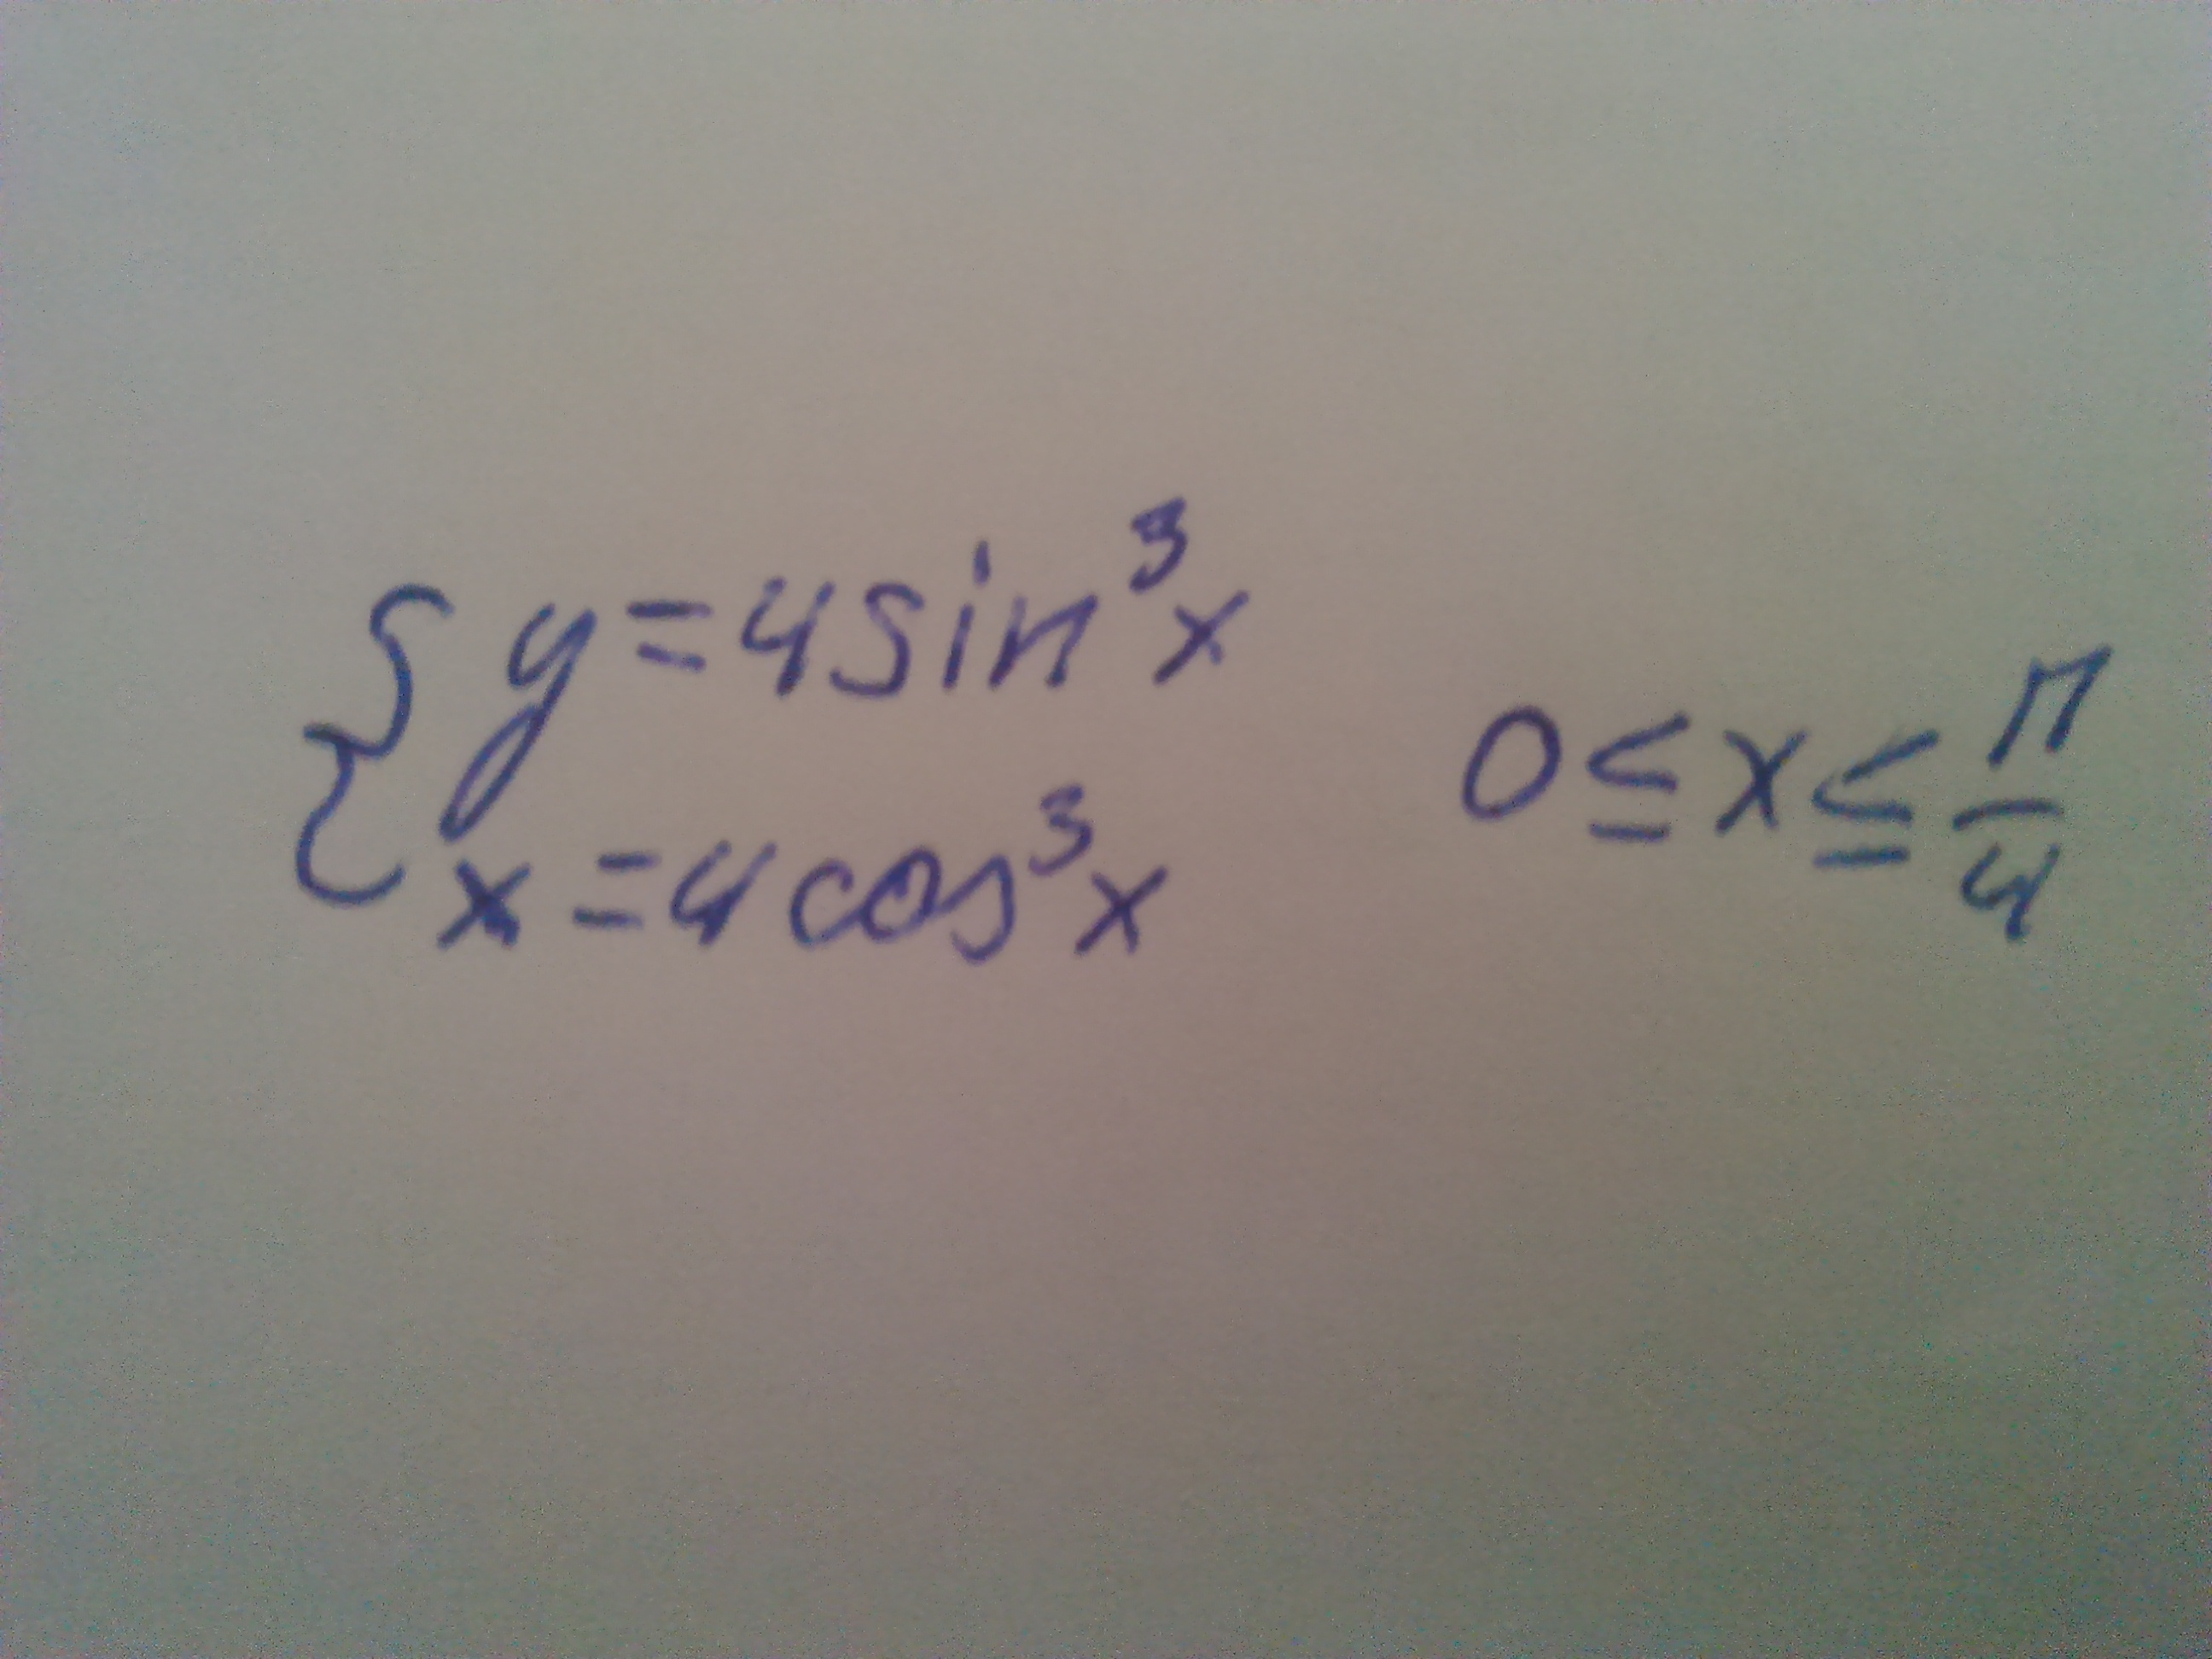 { y = 4 sin³x
x = 4 cos³x
0 ≤ x ≤ π/4